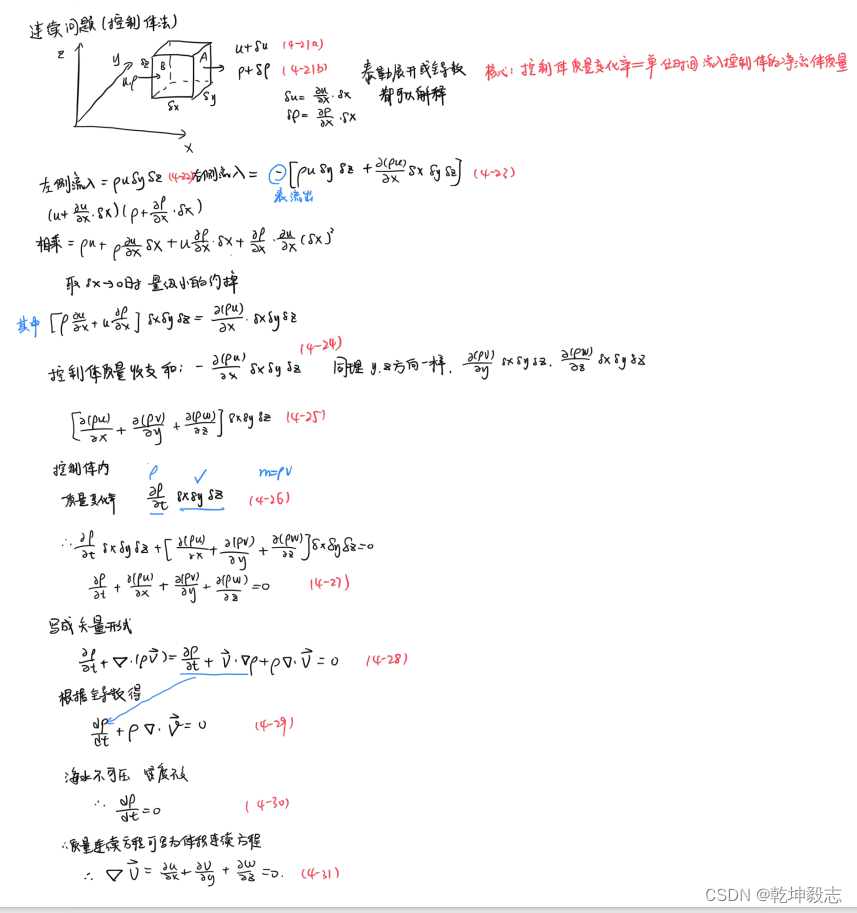 连续问题(控制体法)
z y x
B A δz δx δy u.ρ
u+δu (4-21a)
ρ+δρ (4-21b)
δu= ∂u/∂x · δx
δρ= ∂ρ/∂x · δx
泰勒展开或全导数
都可以解释
核心: 控制体质量变化率=单位时间流入控制体的净流体质量
左侧流入=ρuδyδz (4-22) 右侧流入= -[ρuδyδz + ∂(ρu)/∂x δxδyδz] (4-23)
表流出
(u+ ∂u/∂x · δx)(ρ+ ∂ρ/∂x · δx)
相乘=ρu+ρ ∂u/∂x δx+u ∂ρ/∂x · δx+ ∂ρ/∂x · ∂u/∂x (δx)²
取δx→0时 量级小的约掉
其中 [ρ ∂u/∂x +u ∂ρ/∂x] δxδyδz= ∂(ρu)/∂x · δxδyδz
控制体质量收支和: - ∂(ρu)/∂x δxδyδz (4-24) 同理 y.z方向一样. ∂(ρv)/∂y δxδyδz. ∂(ρw)/∂z δxδyδz
[∂(ρu)/∂x + ∂(ρv)/∂y + ∂(ρw)/∂z] δxδyδz (4-25)
控制体内 ρ ✓ m=ρV
质量变化率 ∂ρ/∂t δxδyδz (4-26)
∴ ∂ρ/∂t δxδyδz+[∂(ρu)/∂x + ∂(ρv)/∂y + ∂(ρw)/∂z]δxδyδz=0
∂ρ/∂t + ∂(ρu)/∂x + ∂(ρv)/∂y + ∂(ρw)/∂z =0 (4-27)
写成矢量形式
∂ρ/∂t +∇·(ρV⃗)= ∂ρ/∂t + V⃗·∇ρ+ρ∇·V⃗=0 (4-28)
根据全导数得
dρ/dt +ρ∇·V⃗=0 (4-29)
海水不可压 密度不变
∴ dρ/dt =0 (4-30)
∴质量连续方程可写为体积连续方程
∴ ∇V⃗= ∂u/∂x + ∂v/∂y + ∂w/∂z =0. (4-31)
CSDN @乾坤毅志